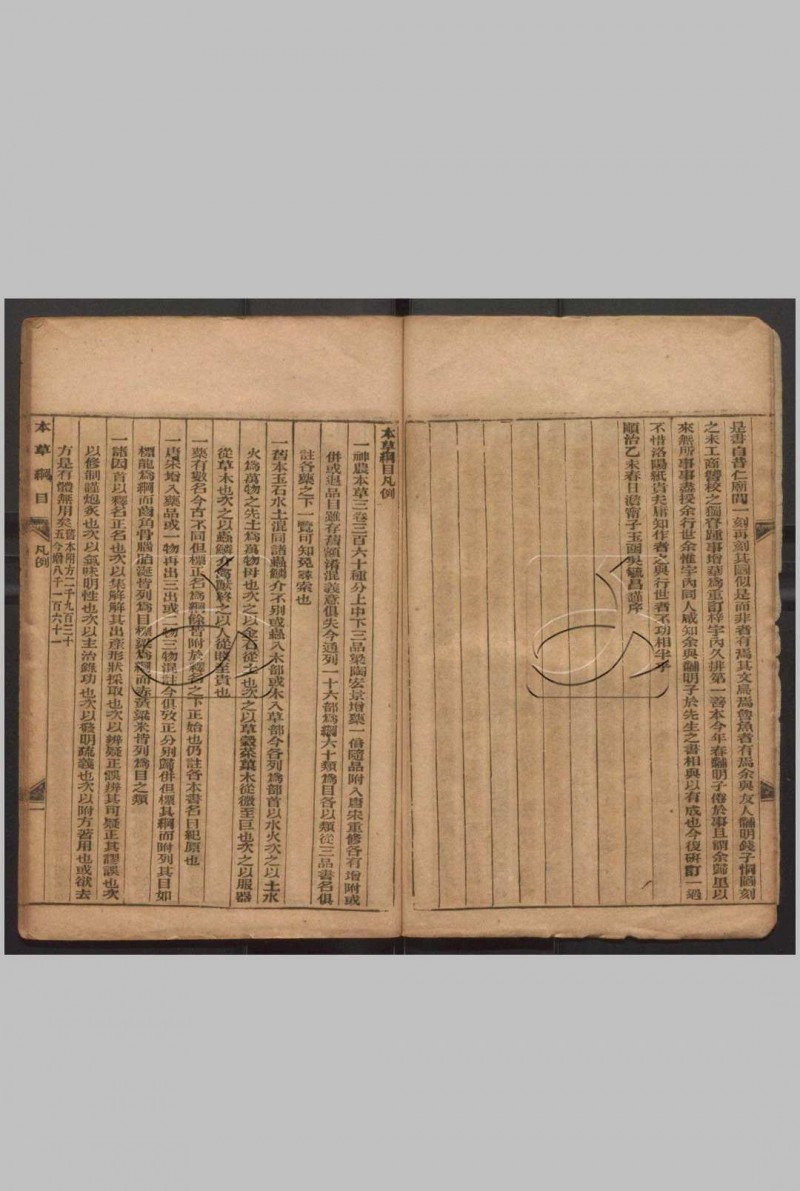 是書自昔仁廟間一刻再刻其圖似是而非者有焉其文烏焉魯魚者有焉余與友人翩明錢子惻圖刻
之未工商讐校之獨眘踵事增華為重訂梓宇內久推第一善本今年春翩明子倦於事且謂余歸里以
來無所事事盡授余行世余惟宇內同人咸知余與翩明子於先生之書相與以有成也今復硏訂一過
不惜洛陽紙貴夫庸知作者之與行世者不功相半乎
順治乙未春日澹甯子玉涵吳毓昌謹序
本草綱目凡例
一神農本草三卷三百六十種分上中下三品梁陶宏景增藥一倍隨品附入唐宋重修各有增附或
併或退品目雖存舊額淆混義意俱失今通列一十六部為綱六十類為目各以類從三品書名俱
註各藥之下一覽可知免尋索也
一舊本玉石水土混同諸蟲鱗介不別或蟲入木部或木入草部今各列為部首以水火次之以土水
火為萬物之先土為萬物母也次之以金石從土也次之以草穀菜菓木從微至巨也次之以服器
從草木也次之以蟲鱗介禽獸終之以人從賤至貴也
一藥有數名今古不同但標正名為綱餘皆附於釋名之下正始也仍註各本書名目紀原也
一唐宋增入藥品或一物再出三出或二物三物混註今俱攷正分別歸併但標其綱而附列其目如
標龍為綱而齒角骨腦胎涎皆列為目標粱為綱而赤黃粱米皆列為目之類
一諸因首以釋名正名也次以集解解其出產形狀採取也次以辨疑正誤辨其可疑正其謬誤也次
以修制謹炮炙也次以氣味明性也次以主治錄功也次以發明疏義也次以附方著用也或欲去
方是有體無用矣舊本附方二千九百三十五今增八千一百六十一
本草綱目
凡例